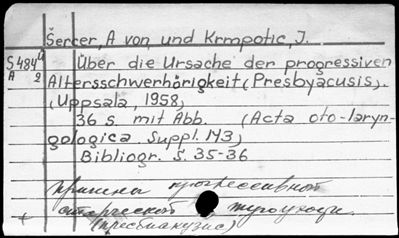 Šercer, A von, und Krmpotic, J.
S484 4 Über die Ursache der progressiven
A 2 Altersschwerhörigkeit (Presbyacusis).
(Uppsala, 1958)
36 s. mit Abb. (Acta oto-laryn-
gologica. Suppl. 143)
Bibliogr. S. 35-36
причина прогрессивной
старческой тугоухости.
(пресбиакузис)